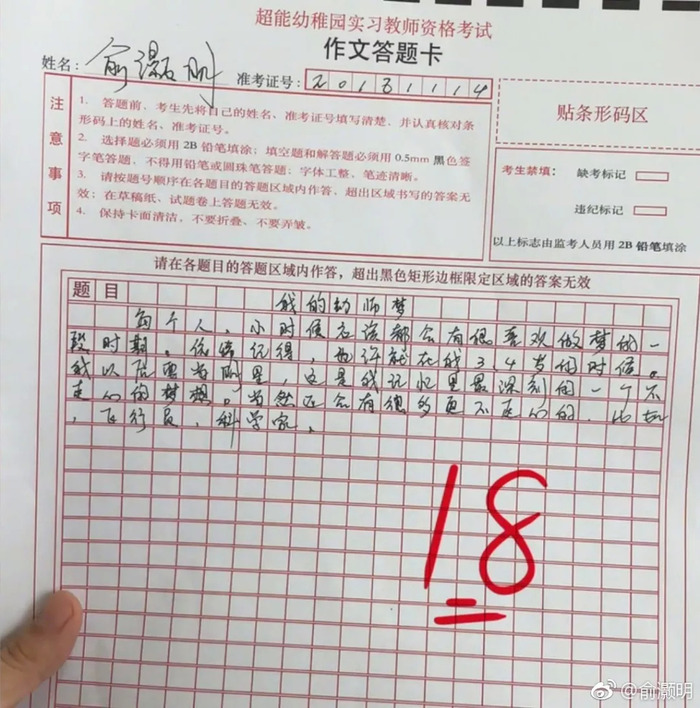 超能幼稚园实习教师资格考试
作文答题卡
姓名：俞灏明 准考证号：20131114
注意事项
1. 答题前，考生先将自己的姓名、准考证号填写清楚，并认真核对条
形码上的姓名、准考证号。
2. 选择题必须用 2B 铅笔填涂；填空题和解答题必须用 0.5mm 黑色签
字笔答题，不得用铅笔或圆珠笔答题；字体工整、笔迹清晰。
3. 请按题号顺序在各题目的答题区域内作答，超出区域书写的答案无
效；在草稿纸、试题卷上答题无效。
4. 保持卡面清洁，不要折叠、不要弄皱。
贴条形码区
考生禁填： 缺考标记
违纪标记
以上标志由监考人员用 2B 铅笔填涂
请在各题目的答题区域内作答，超出黑色矩形边框限定区域的答案无效
题目
我的幼师梦
每个人，小时候应该都会有很喜欢做梦的一
段时期。依稀记得，也许就在我3,4岁的时候。
我以后要当明星，这是我记忆里最深刻的一个不
走心的梦想。当然还会有很多更不走心的，比如
，飞行员，科学家。
18
@俞灏明